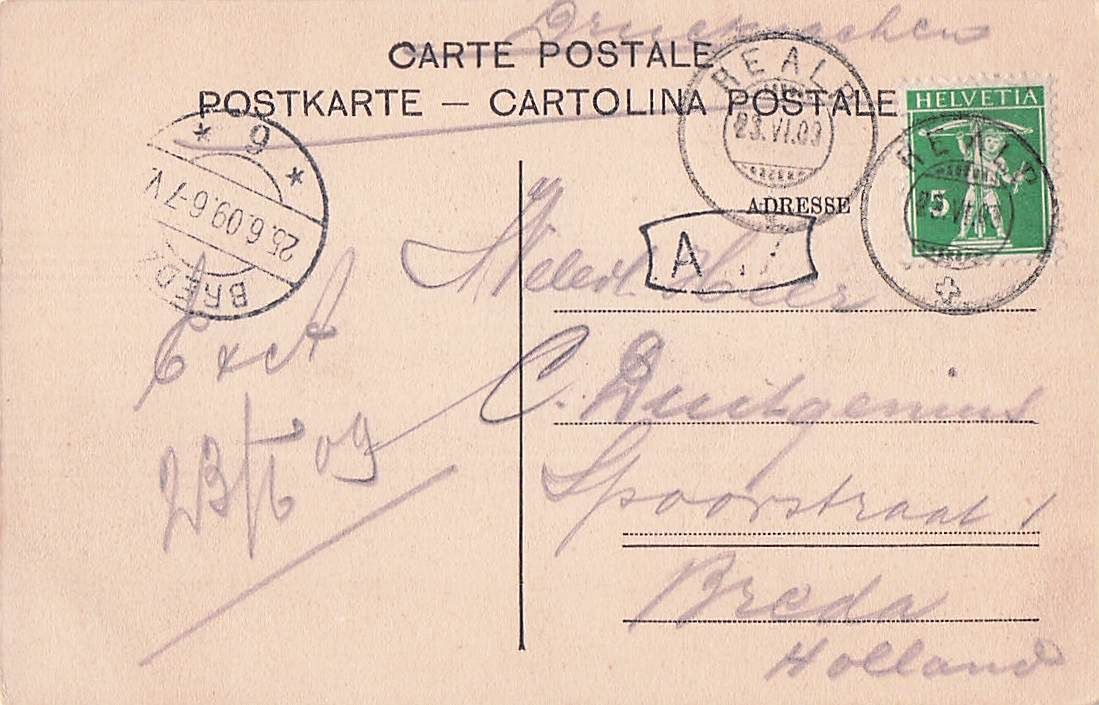 Drucksachen
CARTE POSTALE
POSTKARTE — CARTOLINA POSTALE
HELVETIA
5
REALP
23.VI.09
REALP
ADRESSE
A
6
25.6.09.6-7V.
BREDA
Heer
C. Duitgenius
Spoorstraat 1
Breda
Holland
23/6 09